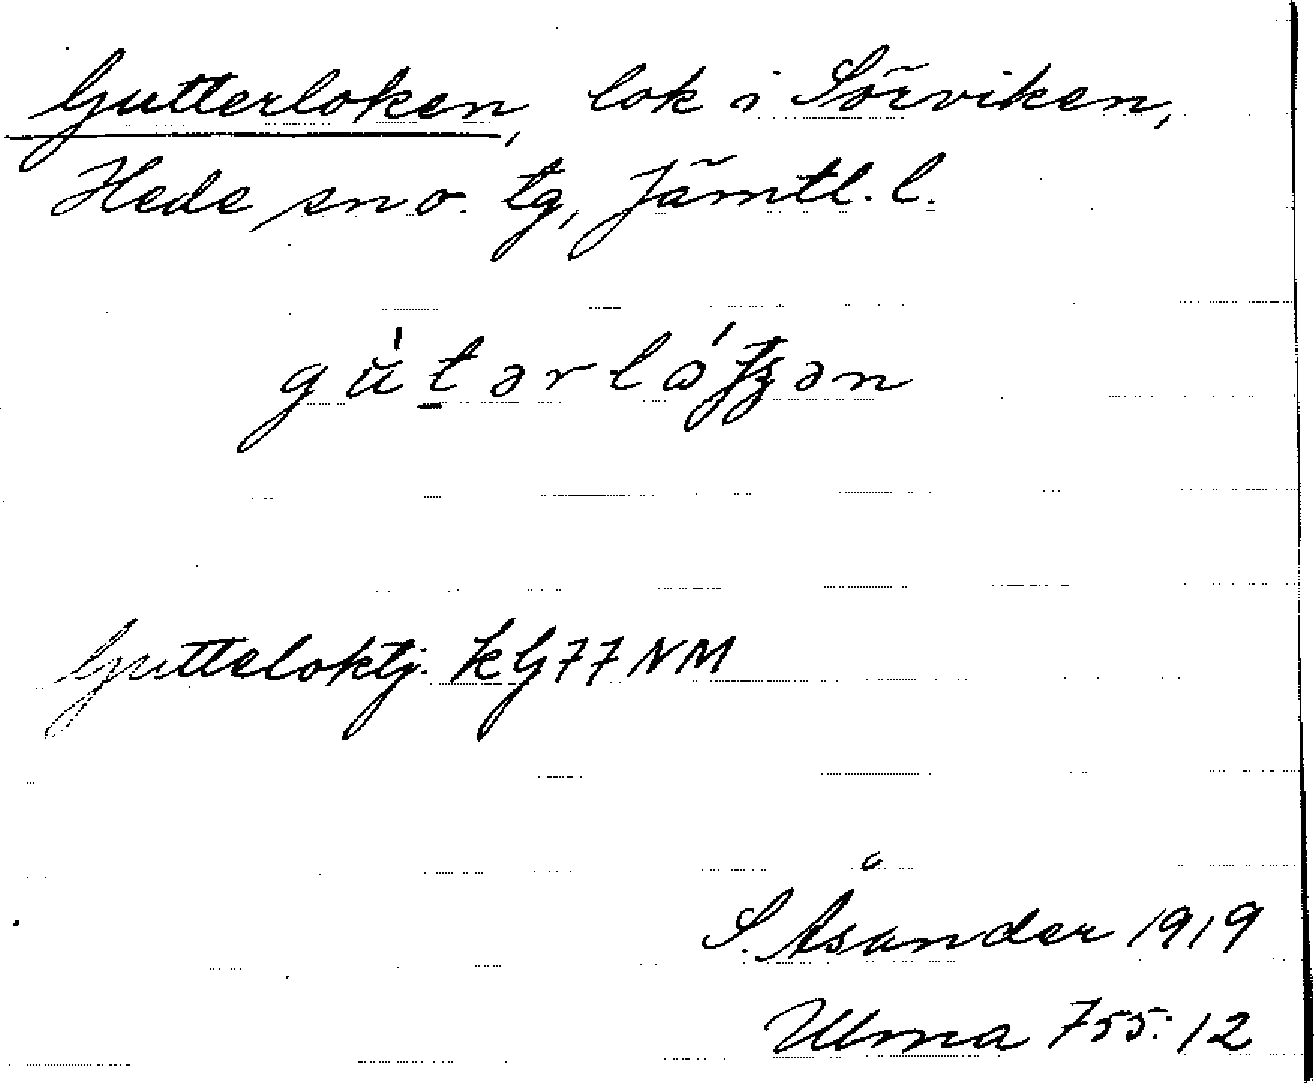 Gutterloken, lok i Sörviken,
Hede sn o. tg, Jämtl. l.
Gutteloktj. kG77NM
S. Åsander 1919
Ulma 755:12